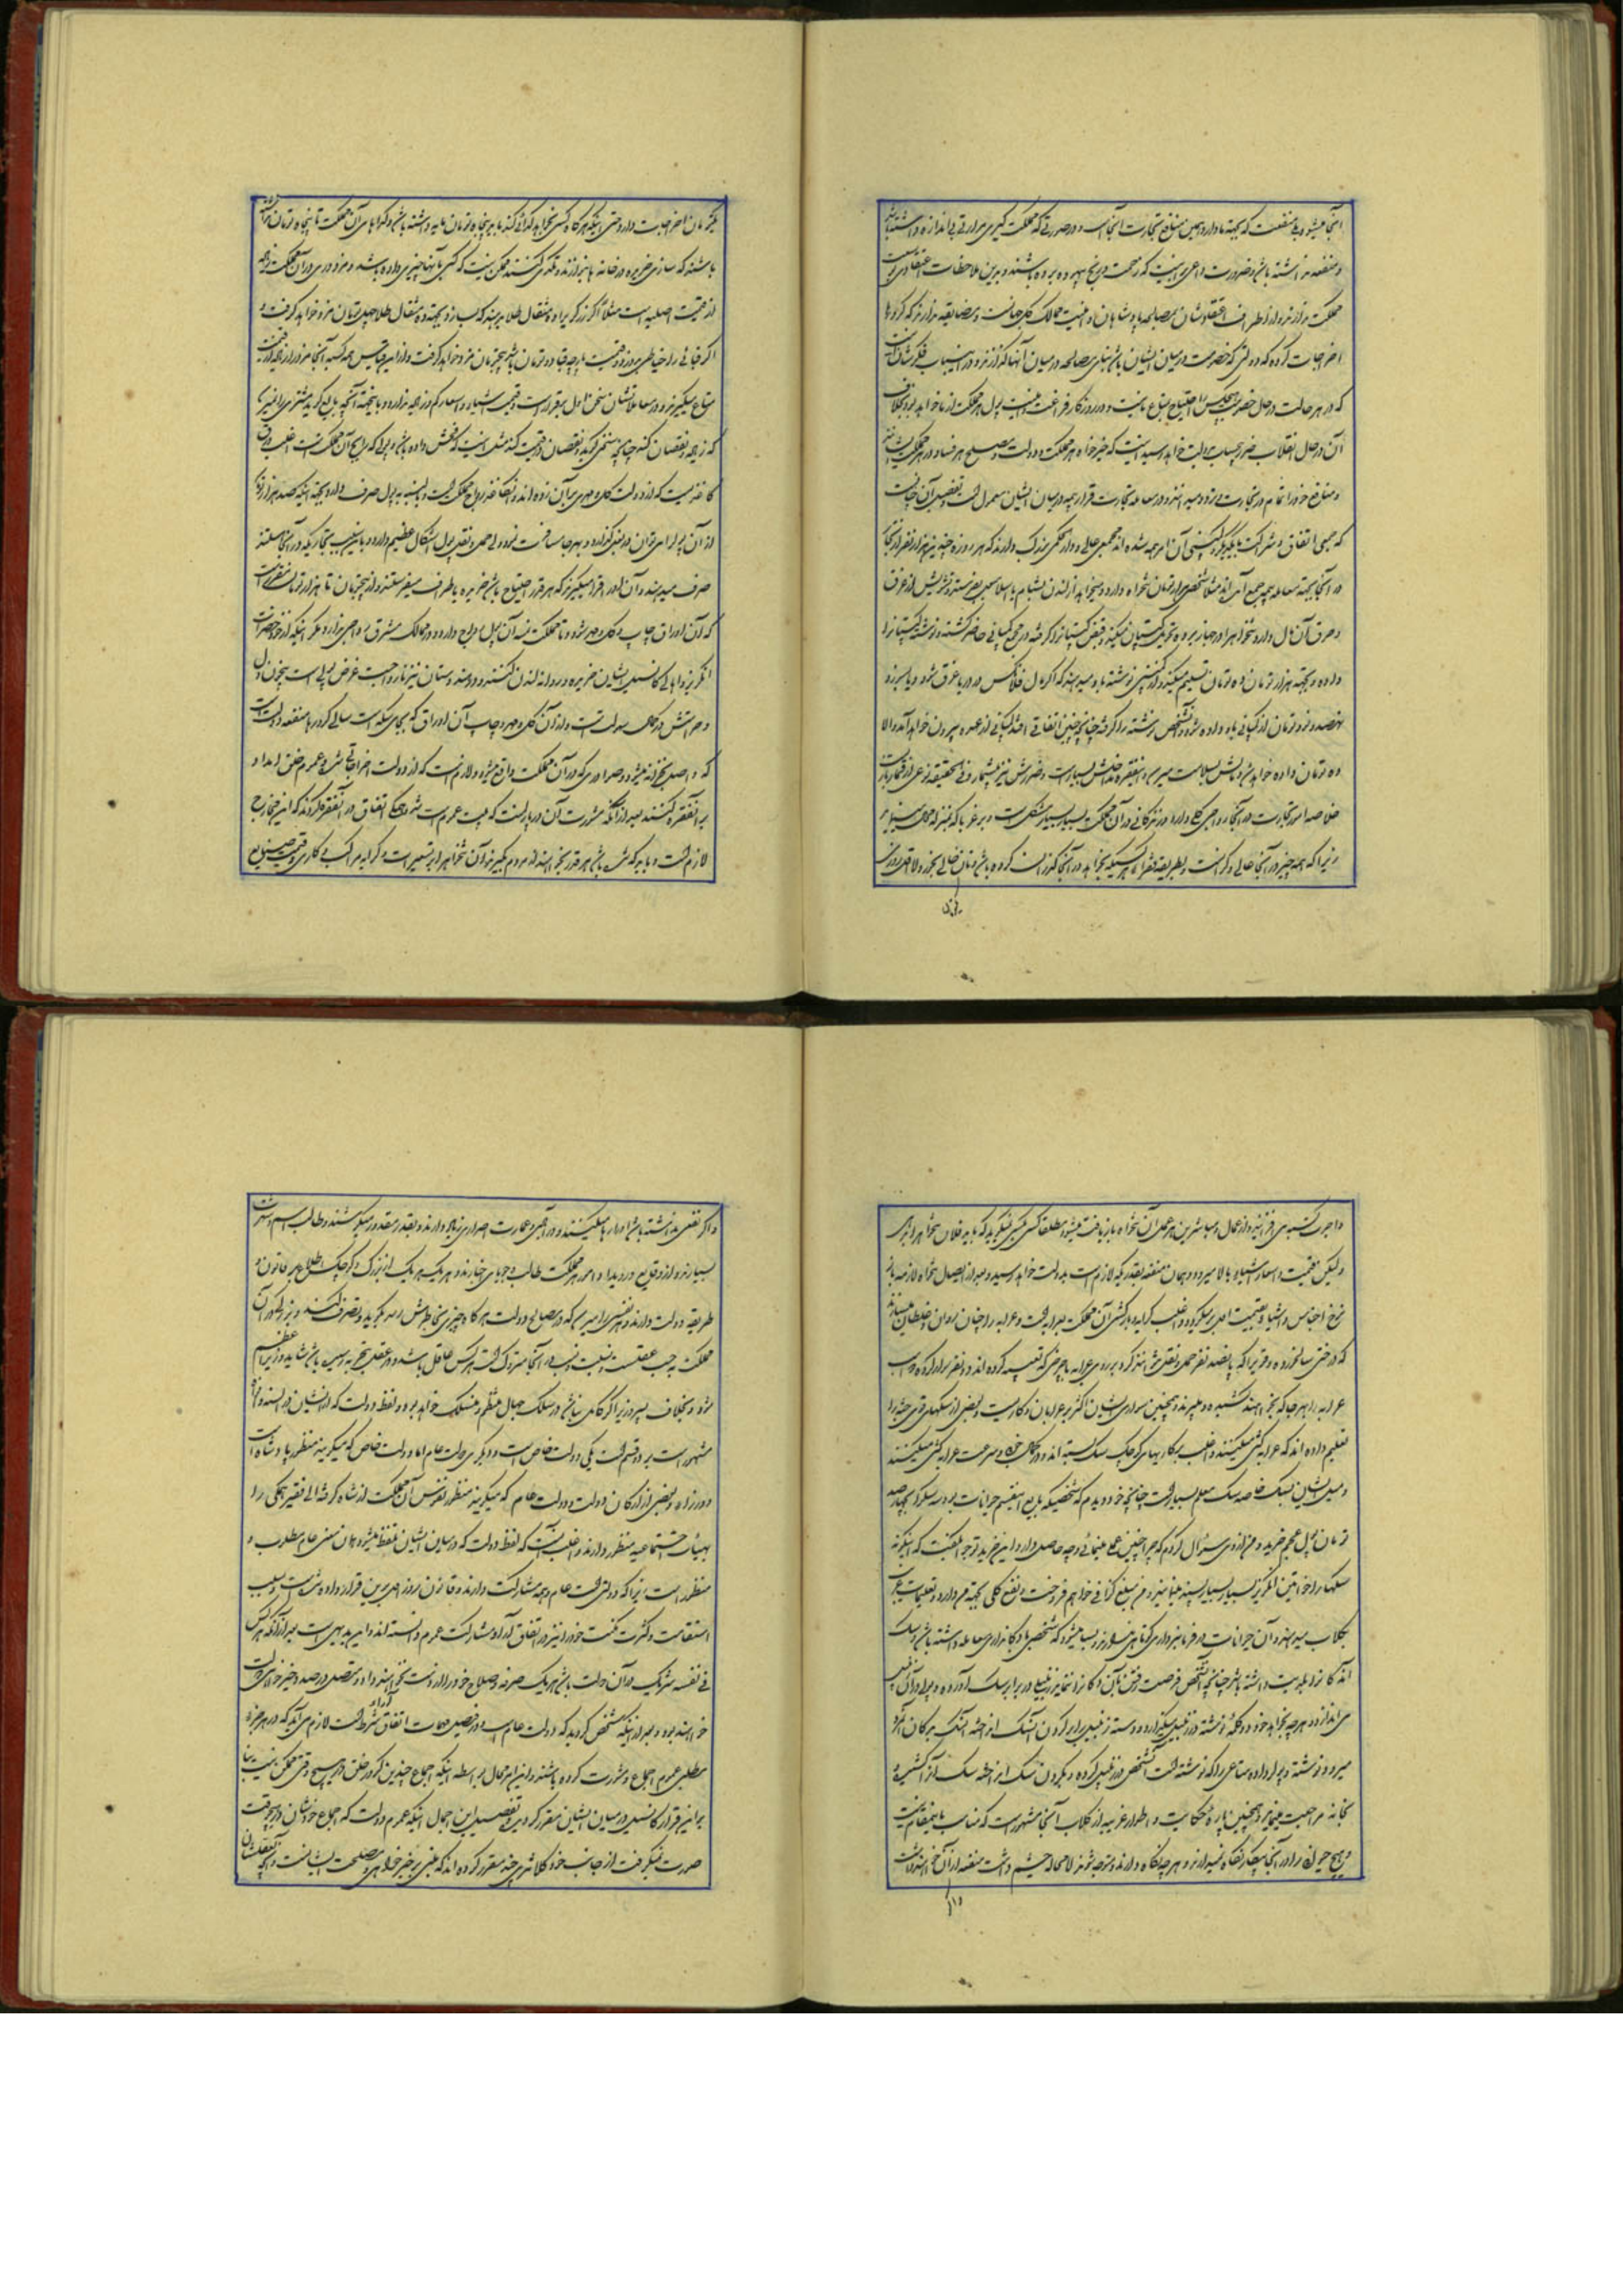 آنجا میشود بی منفعت که بجهة ما دارد همین منافع تجارت آنجاست و در صورتی که مملکت گیری مرارتی بی اندازه داشته باشد
و منفعت نداشته باشد ضرورت داعی بر این نیست که زحمت و رنج بیهوده برده باشند و برین ملاحظات اعتقادی بر
مملکت ندارند و از اطراف اعتقادشان بمصالحه پادشاهان و امنیت ممالک کل جهانست و مضایقه ندارند که کرورها
اخراجات کرده که دولتی که خصومت در میان ایشان باشد بنای مصالحه در میان آنها گذارند و در اینباب فکرشان آنست
که در هر حالت در حال خصومت هیچکس را احتیاج بمتاع ما نیست و در روزگار فراغت و امنیت پول هر مملکت از ما خواهد بود بخلاف
آن در حال انقلاب ضرر بیحساب بدولت خواهد رسید اینست که خیرخواه هر مملکت و دولت و مصلح هر فساد در هر مملکت
و منافع خود را تمام در تجارت دیده و میدانند و در معامله تجارت قرار بیمه در میان ایشان معمول است و تفصیل آن چنانست
که جمعی اتفاق و شراکت با یکدیگر کرده کمپنی آن امر بیمه شده اند مجمعی عالی و دار الحکمی بزرگ دارند که هر روزه چندین هزار نفر از تجار
در آنجا بجهة معامله بیمه جمع آیند مثلاً شخصی هزار تومان تنخواه دارد و میخواهد از لندن بشام یا اسلامبول بفرستد و تشویش از غرق
و حرق آن مال دارد تنخواه را در جهاز برده تحویل کپیتان میکند و قبض کپیتان را گرفته در مجمع کمپانی حاضر گشته و نوشته کپیتان را
داده و بجهة هزار تومان ده تومان تسلیم میکند و از کمپنی نوشته باو میدهند که اگر مال فلان کس در دریا غرق شود و یا بسوزد
نهصد و نود تومان از کمپانی باو داده شود و آنشخص نوشته را گرفته چنانچه چنین اتفاقی افتد کمپانی از عهده بیرون خواهد آمد و الا
ده تومان داده خواهد شد و مالش بسلامت میرسد و اینفقره مداخلش بسیار است و ضررش نیز بیشمار و فی الحقیقه نوعی از قمار بازیست
خلاصه امور تجارت در آنجا رواجی کلی دارد و زندگانی در آن مملکت بسیار بسیار مشکل است و بر غربا که بمنزله محال مینماید
زیرا که همه چیز در آنجا عالی و گرانست بطریقه فقرا هر کسیکه بخواهد در آنجا گذران کرده باشد و نان خالی بخورد لااقل روزی
یکتومان اخراجات دارد و حتی اینکه هر گاه کسی بخواهد گدائی کند باید پنجاه تومان مایه داشته باشد و گداهای آن مملکت تا پنجاه تومان نداشته
باشند که سازی خریده در خانه ها بنوازند و تکدی کنند ممکن نیست که کسی بآنها چیزی داده باشد و مزدوری در آن مملکت زیاده
از قیمت اصلیه است مثلاً اگر زرگر را ده مثقال طلا بدهند که بسازد بجهة ده مثقال طلا چهل تومان مزد خواهد گرفت و
اگر قبائی را خیاطی بدوزد و قیمت پارچه قبا دو تومان باشد پنجتومان مزد خواهد گرفت و از این قیاس همه کسبه آنجا مزد را زیاده از قیمت
متاع میگیرند و در معاملاتشان سخن اول برقرار است و قیمت اشیاء و اسعار کم و زیاد ندارد و باینجهة آنچه بایع گوید مشتری را نمیرسد
که زیاد و نقصان کند چنانچه سخنی گوید و نقصان در قیمت کند مثل اینست که فحش داده باشد و پولی که رایج آن مملکت است اغلب ورق
کاغذیست که از دولت کلک و مهری بر آن زده اند و آن کاغذ رایج مملکت است و البته به پول صرف دارد بجهة اینکه صد هزار تومان
از آن پولرا میتوان در بغلی گذارد و بهر جا مسافرت نمود ولی حمل و نقل پول اشکال عظیم دارد و باین سبب تجاریکه در آنجا هستند
صرف میدهند و آن اوراق را میگیرند که هر قدر احتیاج باشد خریده باطراف میفرستند و از پنجتومان تا هزار تومان مقرر است
که آن اوراق چاپ و کلک و مهر شود و تا مملکت هند آن پول رواج دارد و در ممالک مشرق رواجی ندارد مگر اینکه از خود حضرات
انگریز و اهالی کانسیل ایشان خریده و روانه لندن کنند و در هندوستان نیز نارواجست غرض پولی است بیخون دل
و حراستش در کمال سهولتست و از آن کلک و مهر و چاپ آن اوراق که بجای سکه است سالی کرورها منفعه دولت است
که واصل بخزانه میشود و هر امری که در آن مملکت واقع میشود و لازمست که از دولت اخراجاتی شود عموم خلق امداد
بر آنفقره کنند بعد از آنکه مشورت آن در پارلمنت که بیت عموم است شده همگی اتفاق در آنفقره کردند که این مخارج
لازم است و باید که شده باشد هر قدر بخواهند از مردم بگیرند و آن تنخواه را بر تعمیرات و کرایه مراکب و گاری و قیمت
و اجرت کشتی افزایند و از عمال و مباشرین هر عمل آن تنخواه بازیافت میشود مطلقا کسی بکسی نمیگوید که باید فلان تنخواه را بدهی
ولیکن بقیمت و اسعار اشیاء بالا میرود و همان منفعه بقدریکه لازم است بدولت خواهد رسید و بعد از ایصال تنخواه لازمه باز
نرخ اجناس و اشیا بقیمت اول برمیگردد و اغلب کرایه و بارکشی آن مملکت بعرابه است و عرابه را چنان روان و غلطان میسازند
که درختی سالخورده و قوی را که پانصد نفر حمل و نقل نتوانند کرد بر روی عرابه با چرخی که تعبیه کرده اند دو نفر بر او گردد و اسب
عرابه را بهر جا که بخواهند کشیده و میبرند و همچنین سواری ایشان اکثر بر عرابه و کالسکه است و بعضی از سگهای قوی جثه را
تعلیم داده اند که عرابه کشی میکنند و اغلب بر گاریهای کوچک سگ بسته اند و در کمال خوبی و سرعت عرابه کشی میکنند
و میل ایشان بسگ خاصه سگ معلم بسیار است چنانچه خود دیدم که شخصیکه بایع اینقسم حیوانات بود سه سگ را بچهارصد
تومان پول عجم خرید و من از وی سؤال کردم که چرا چنین عمل مینمائی و چه حاصل دارد این خرید تو جواب گفت که اینگونه
سگها را خواتین انگریز بسیار بسیار پسند مینمایند و من بمبلغ گزافی خواهم فروخت و نفع کلی بجهة من دارد و تعلیمات غریب
بکلاب میدهند و آن حیوانات در فرمانبرداری کوتاهی نمیورزند و بسا میشود که شخصی با دکانداری معامله داشته باشد و سگ
آن دکان را بلدیت داشته باشد چنانچه آنشخص فرصت رفتن بآن دکان را ننماید زنبیلی در برابر سگ آورده و پولی در آن زنبیل
می اندازد و هر چه بخواهد خود در کاغذ نوشته در زنبیل میگذارد و دسته زنبیل را بر گردن آن سگ انداخته آن سگ بدکان آنمرد
میرود و نوشته و پولرا داده متاعی را که نوشته است آنشخص در زنبیل کرده و بگردن سگ انداخته سگ آنرا کشیده و
بخانه مراجعت مینماید و همچنین پاره حکایت و اطوار غریبه از کلاب آنجا مشهور است که مناسب باینمقام نیست
و هیچ حیوان را در آنجا بیکار نگاه نمیدارند و هر چه نگاه دارند و متوجه شوند لامحاله چشم داشت منفعه از آن خواهند داشت
و اگر نفعی نداشته باشد او را رها میکنند و در آبادی و عمارت اصراری زیاد دارند و بقدر مقدور میکوشند و طالب اسم و شهرت
بسیارند و از وقایع و رویداد امور هر مملکت طالب و جویای اخبارند و هر یک هر یک از بزرگ و کوچک اطلاع بر قانون و
طریقه دولت دارند و هر نفسی را میرسد که در مصالح دولت هر گاه چیزی بخاطرش رسد بگوید و تصرف کند و بزرگی در آن
مملکت بر حسب عقلست و نسبت و نسب در آنجا متروک است هر کس عاقل باشد و در عقل تجربه رسیده باشد شاید وزیر اعظم
شود و بخلاف پسر وزیر اگر کامل نباشد در سلک جهال منظم و منسلک خواهد بود و لفظ دولت که از ایشان در السنه و افواه
مشهور است بر دو قسم است یکی دولت خاص است و دیگری دولت عام اما دولت خاص که میگویند منظور پادشاه است
و وزراء و بعضی از ارکان دولت و دولت عام که میگویند منظور نفوس آن مملکت از شاه گرفته الی فقیر همگی را
بهیأت اجتماعیه منظور دارند و اغلب آنست که لفظ دولت که در میان ایشان تلفظ میشود همان معنی عام مطلوب و
منظور است زیرا که دولتی است عام و همه مشارکت دارند و قانون روز اول بر این قرار داده شده است و سبب
استقامت و کثرت مکنت خود را نیز در اتفاق آراء و مشارکت عموم دانسته اند و این بدیهی است بعد از آنکه هر کس
فی نفسه شریک در آن دولت باشد هر یک صرفه و صلاح خود را از دست نخواهند داد و متصل در صدد خیرخواهی دولت
خواهند بود و بعد از اینکه مشخص گردید که دولت عام است و در فیصل مهمات اتفاق آراء شرط است لازم می آید که در هر جزء
مطلبی عموم اجماع و مشورت کرده باشند و این امر محال بواسطه اینکه اجماع چندین کرور خلق در هیچ وقتی ممکن نیست بنا
بر این قرار کانسیل در میان ایشان مقرر گردید و تفصیل این اجمال اینکه عموم دولت که اجماع خودشان در هیچوقت
صورت نمیگرفت از جانب خود وکلائی چند مقرر کرده اند که مبنی بر خیرخواهی و مصلحت ایشانست